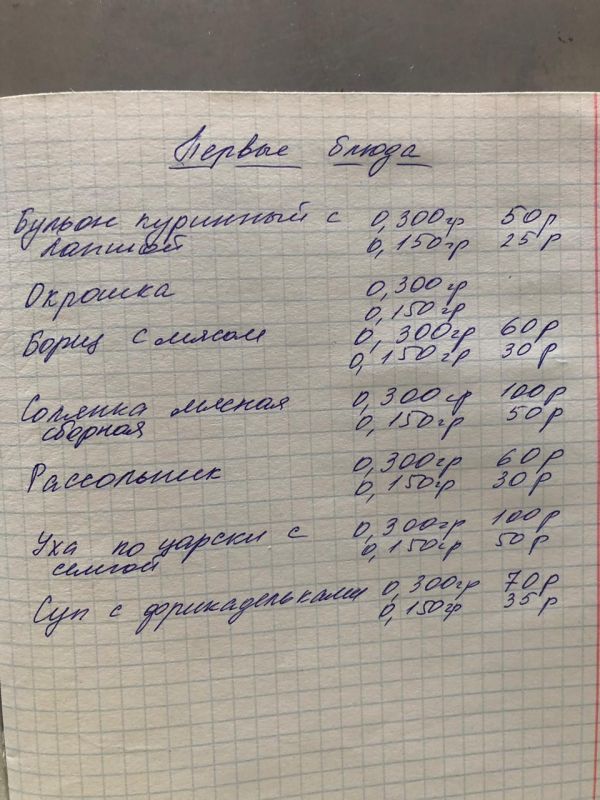 Первые блюда
Бульон куринный с 0,300гр 50р
лапшой 0,150гр 25р
Окрошка 0,300гр
0,150гр
Борщ с мясом 0,300гр 60р
0,150гр 30р
Солянка мясная 0,300гр 100р
сборная 0,150гр 50р
Рассольник 0,300гр 60р
0,150гр 30р
Уха по царски с 0,300гр 100р
семгой 0,150гр 50р
Суп с фрикадельками 0,300гр 70р
0,150гр 35р